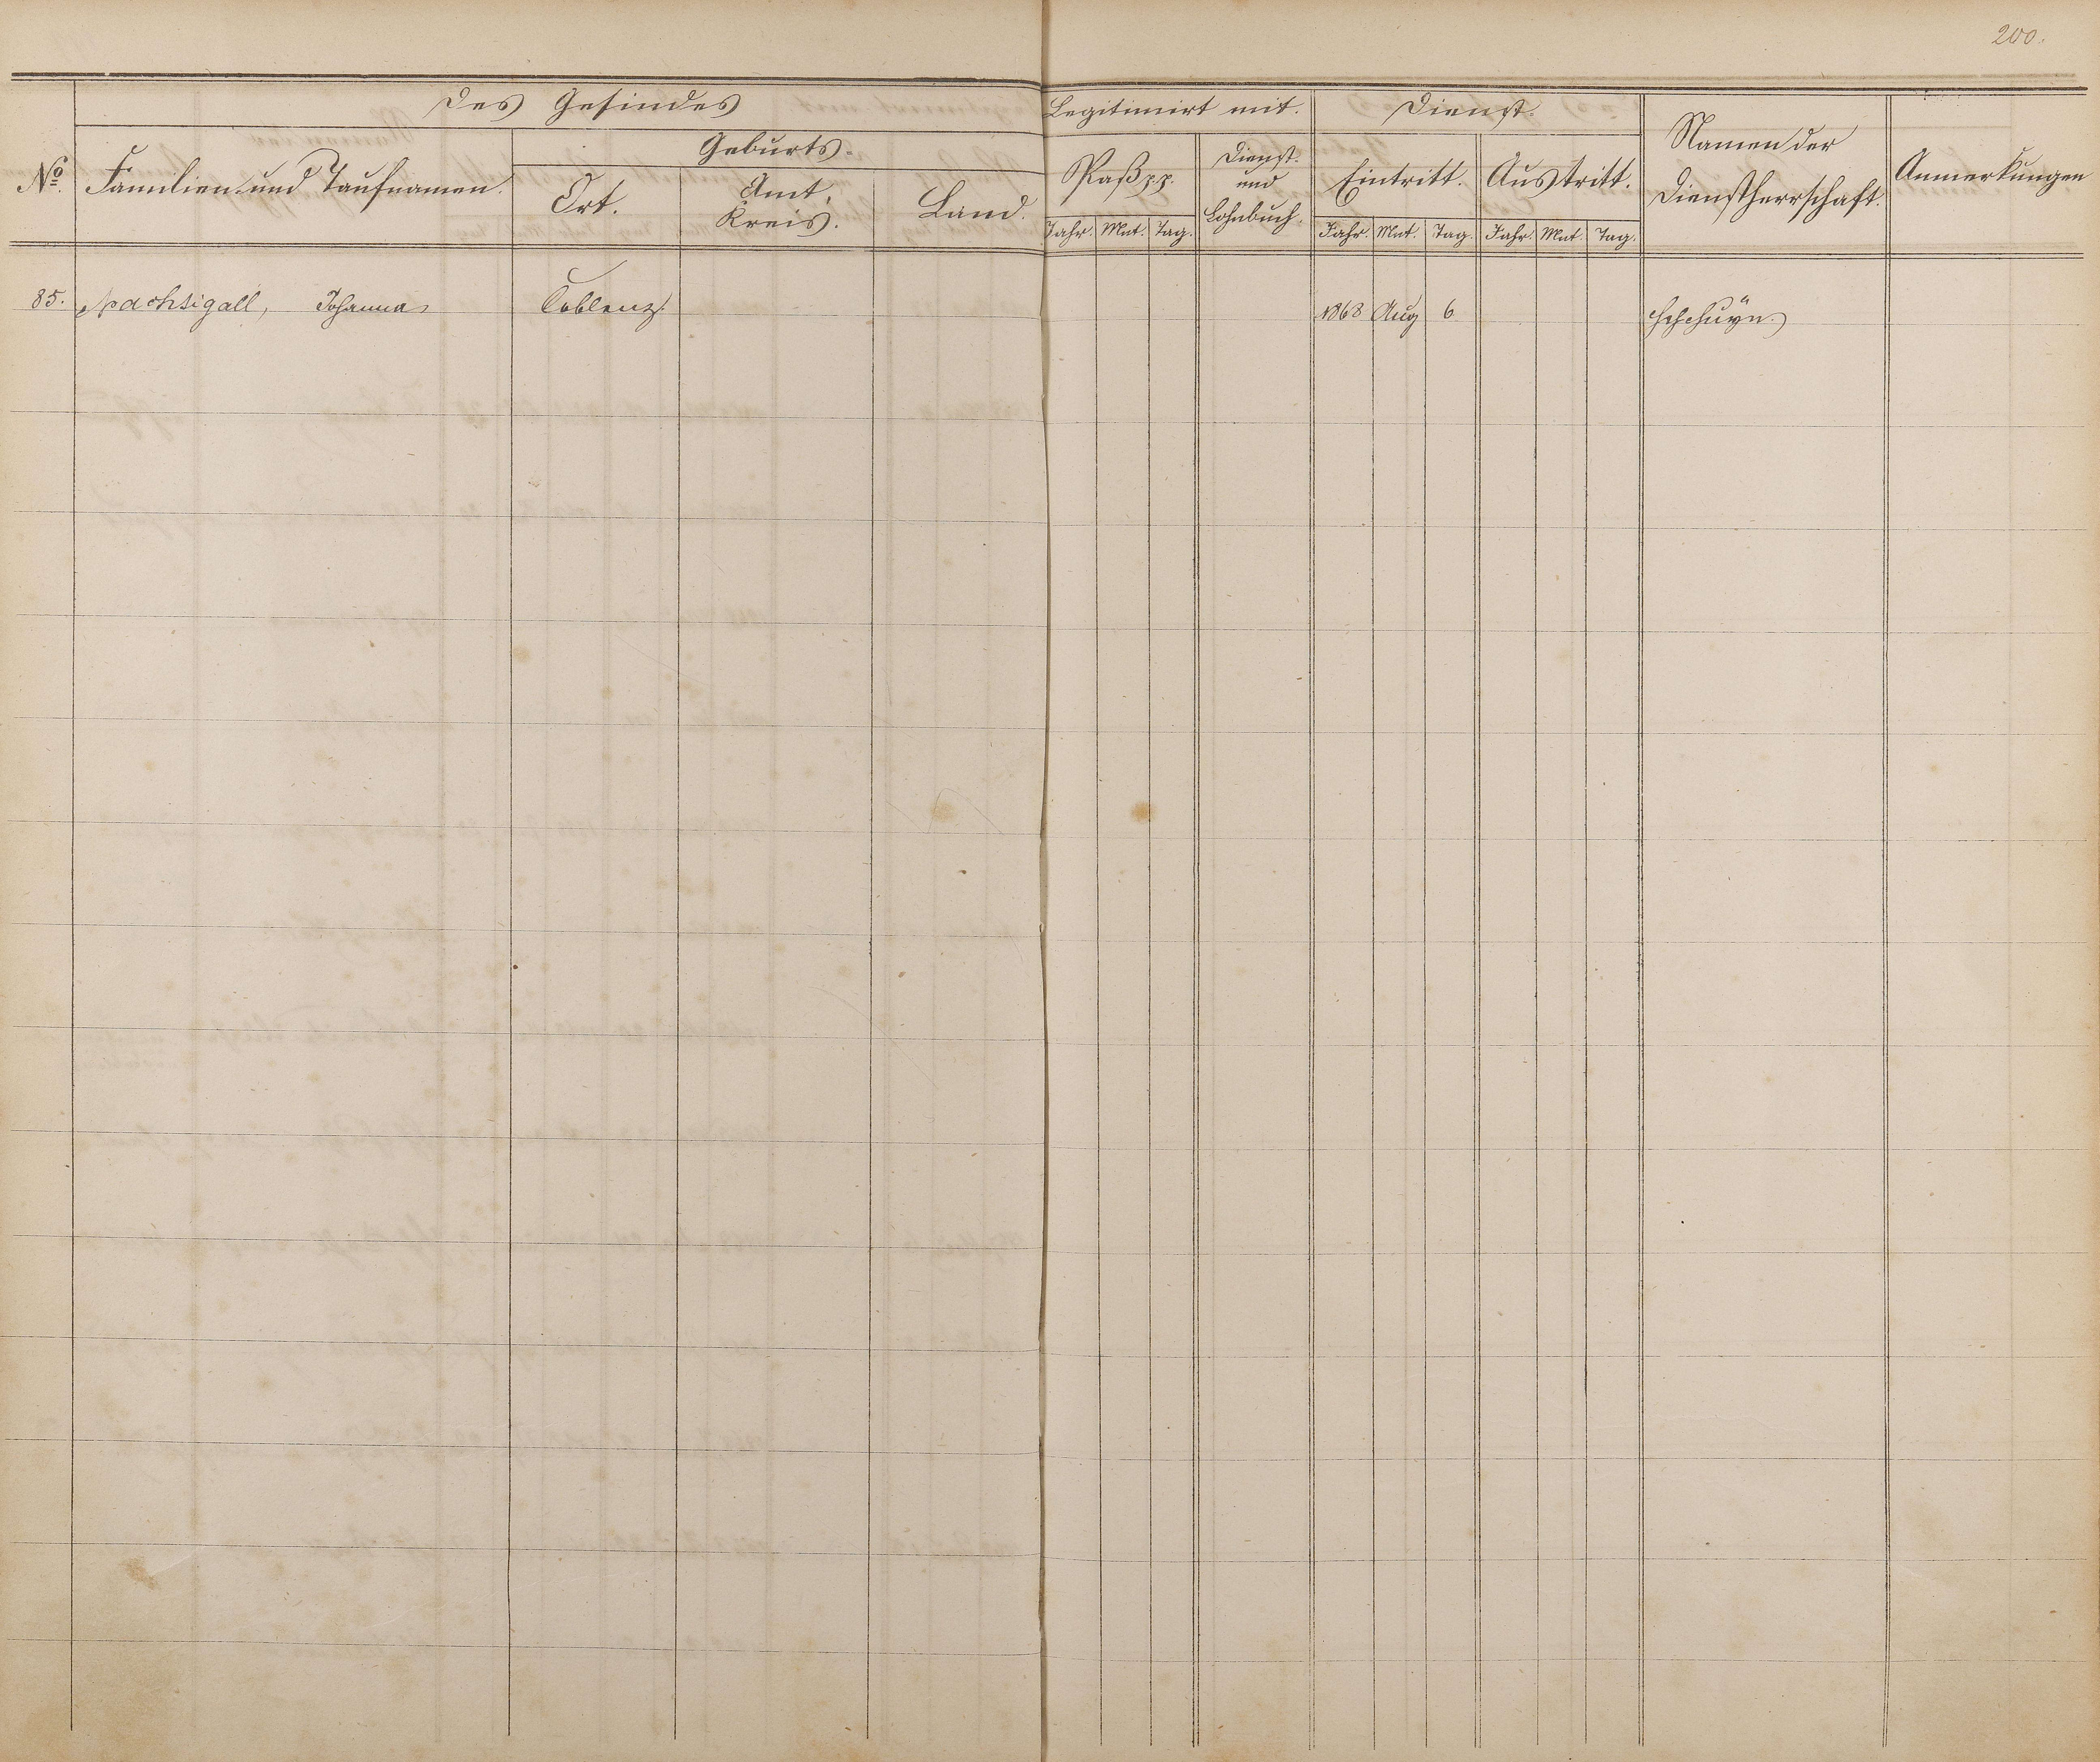 200.
Des Gesindes
Legitimirt mit.
Dienst.
No.
Familien und Taufnamen.
Geburts-
Ort.
Amt,
Kreis.
Land.
Paß p.p.
Dienst-
und
Lohnbuch.
Eintritt.
Austritt.
Namen der
Dienstherrschaft.
Anmerkungen
Jahr. Mnt. Tag.
Jahr. Mnt. Tag.
Jahr. Mnt. Tag.
85. Nachtigall, Johanna Coblenz. 1868 Aug 6